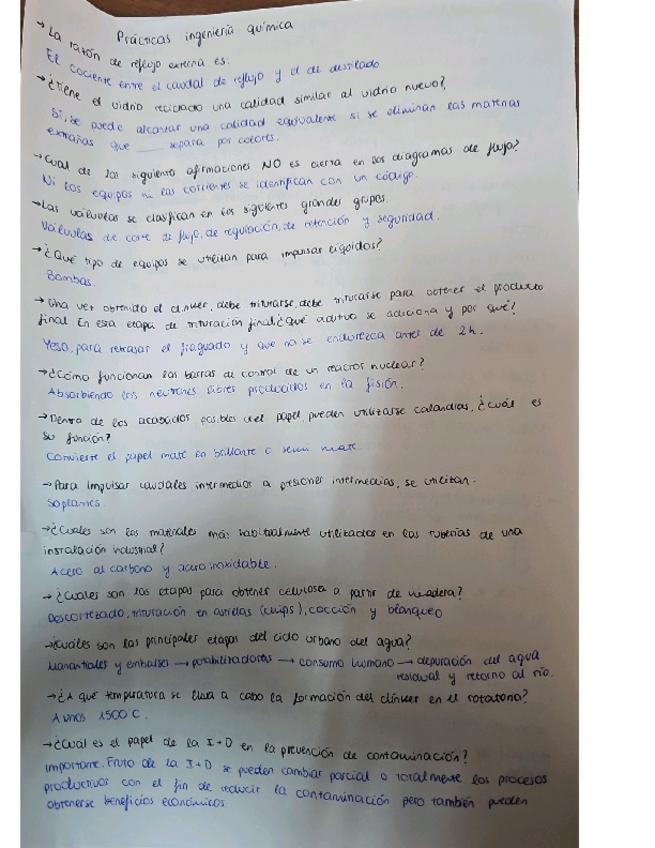 Prácticas ingeniería química
→ La razón de reflujo externa es:
El cociente entre el caudal de reflujo y el de destilado
→ ¿Tiene el vidrio reciclado una calidad similar al vidrio nuevo?
Si, se puede alcanzar una calidad equivalente si se eliminan las materias
extrañas que ___ separa por colores.
→ Cual de las siguiente afirmaciones NO es cierta en los diagramas de flujo?
Ni los equipos ni las corrientes se identifican con un código.
→ Las válvulas se clasifican en los siguientes grandes grupos.
Válvulas de corte de flujo, de regulación, de retención y seguridad.
→ ¿Qué tipo de equipos se utilitan para impulsar líquidos?
Bombas.
→ Una vez obtenido el clinker, debe triturarse, debe triturarse para obtener el producto
final. En esta etapa de trituración final ¿Qué aditivo se adiciona y por qué?
Yeso, para retrasar el fraguado y que no se endurezca antes de 2h.
→ ¿Cómo funcionan las barras de control de un reactor nuclear?
Absorbiendo los neutrones libres producidos en la fisión.
→ Dentro de los acabados posibles del papel, pueden utilizarse calandrias, ¿cuál es
su función?
Convierte el papel mate en brillante o semi mate.
→ Para impulsar caudales intermedios a presiones intermedias, se utilizan.
Soplantes.
→ ¿Cuales son los materiales más habitualmente utilizados en las tuberías de una
instalación industrial?
Acero al carbono y acero inoxidable.
→ ¿Cuales son las etapas para obtener celulosa a partir de madera?
Descortezado, trituración en astillas (chips), cocción y blanqueo
→ ¿Cuáles son las principales etapas del ciclo urbano del agua?
Manantiales y embalses → potabilizadoras → consumo humano → depuración del agua
residual y retorno al río.
→ ¿A que temperatura se lleva a cabo la formación del clínker en el rotatorio?
A unos 1500°C.
→ ¿Cual es el papel de la I+D en la prevención de contaminación?
Importante. Fruto de la I+D se pueden cambiar parcial o totalmente los procesos
productivos con el fin de reducir la contaminación pero también pueden
obtenerse beneficios económicos.